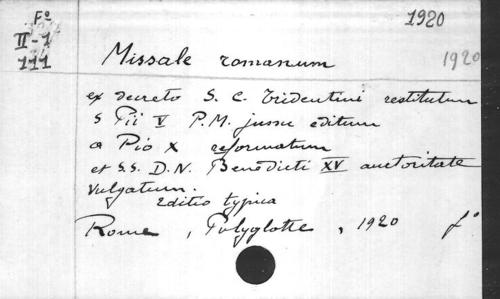 F° 1920
II-1
111
Missale romanum 1920
ex decreto S. C. Tridentini restitutum
S Pii V P.M. jussu editum
a Pio X reformatum
et S.S. D.N. Benedicti XV auctoritate
vulgatum.
Editio typica
Rome, Polyglotte, 1920 f°